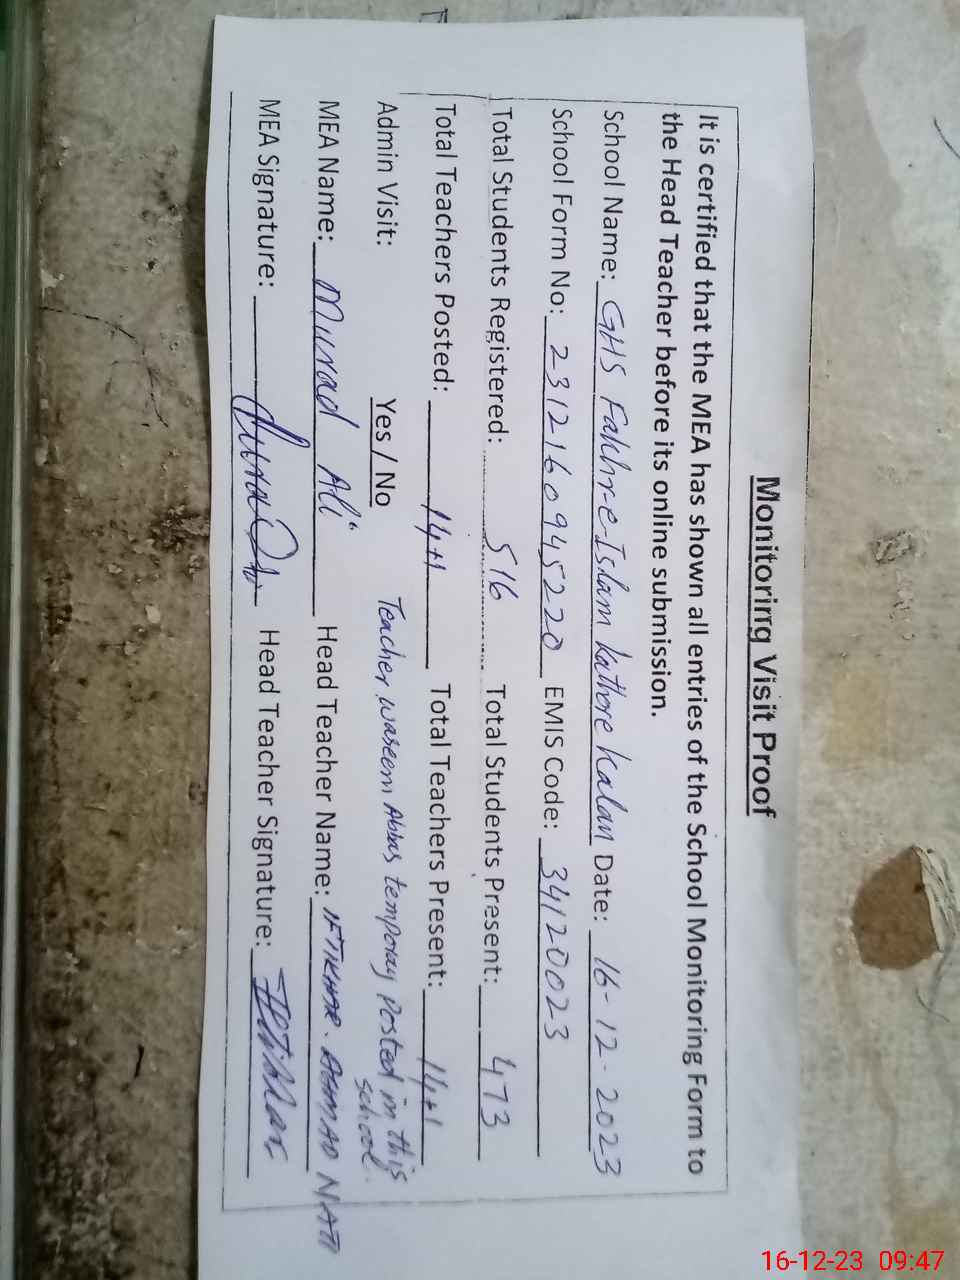 Monitoring Visit Proof
It is certified that the MEA has shown all entries of the School Monitoring Form to
the Head Teacher before its online submission.
School Name: GHS Fakhre-Islam kathore kalan Date: 16-12-2023
School Form No: 2312160945220 EMIS Code: 34120023
Total Students Registered: 516 Total Students Present: 473
Total Teachers Posted: 14+1 Total Teachers Present: 14+1
Admin Visit: Yes / No Teacher waseem Abbas temporay Posted in this
school.
MEA Name: Murad Ali Head Teacher Name: IFTIKHAR. AHMAD
MEA Signature: Head Teacher Signature: Iftikhar
16-12-23 09:47